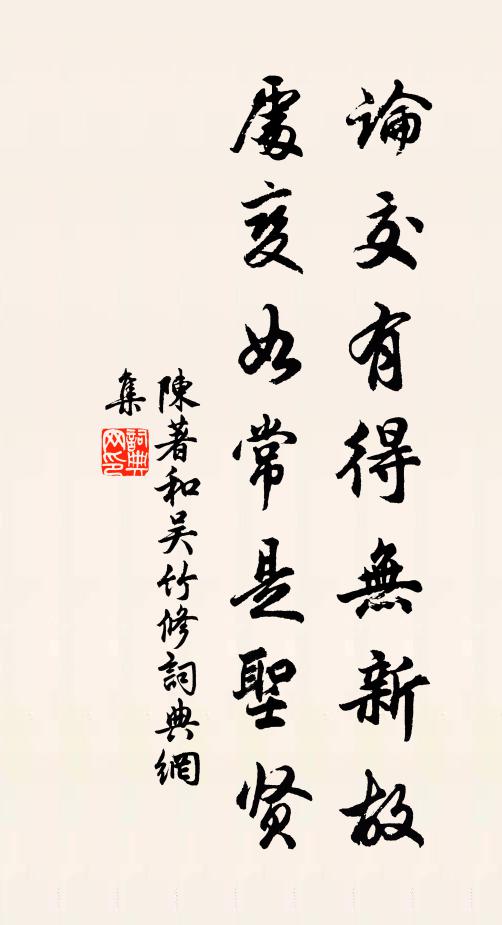 論交有得無新故
處变如常是聖贤
陳著和吴竹修詞典網
集
詞典
网印